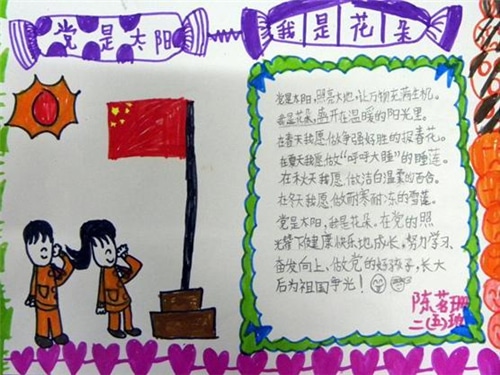 党是太阳
我是花朵
党是太阳,照亮大地,让万物充满生机。
我是花朵,离开在温暖的阳光里。
在春天我愿做争强好胜的探春花。
在夏天我愿做“呼呼大睡”的睡莲。
在秋天我愿做洁白温柔的百合。
在冬天我愿做耐寒耐冻的雪莲。
党是太阳,我是花朵。在党的照
光辉下健康快乐地成长。努力学习、
奋发向上,做党的好孩子,长大
后为祖国争光!
陈茗珊
二(五)班